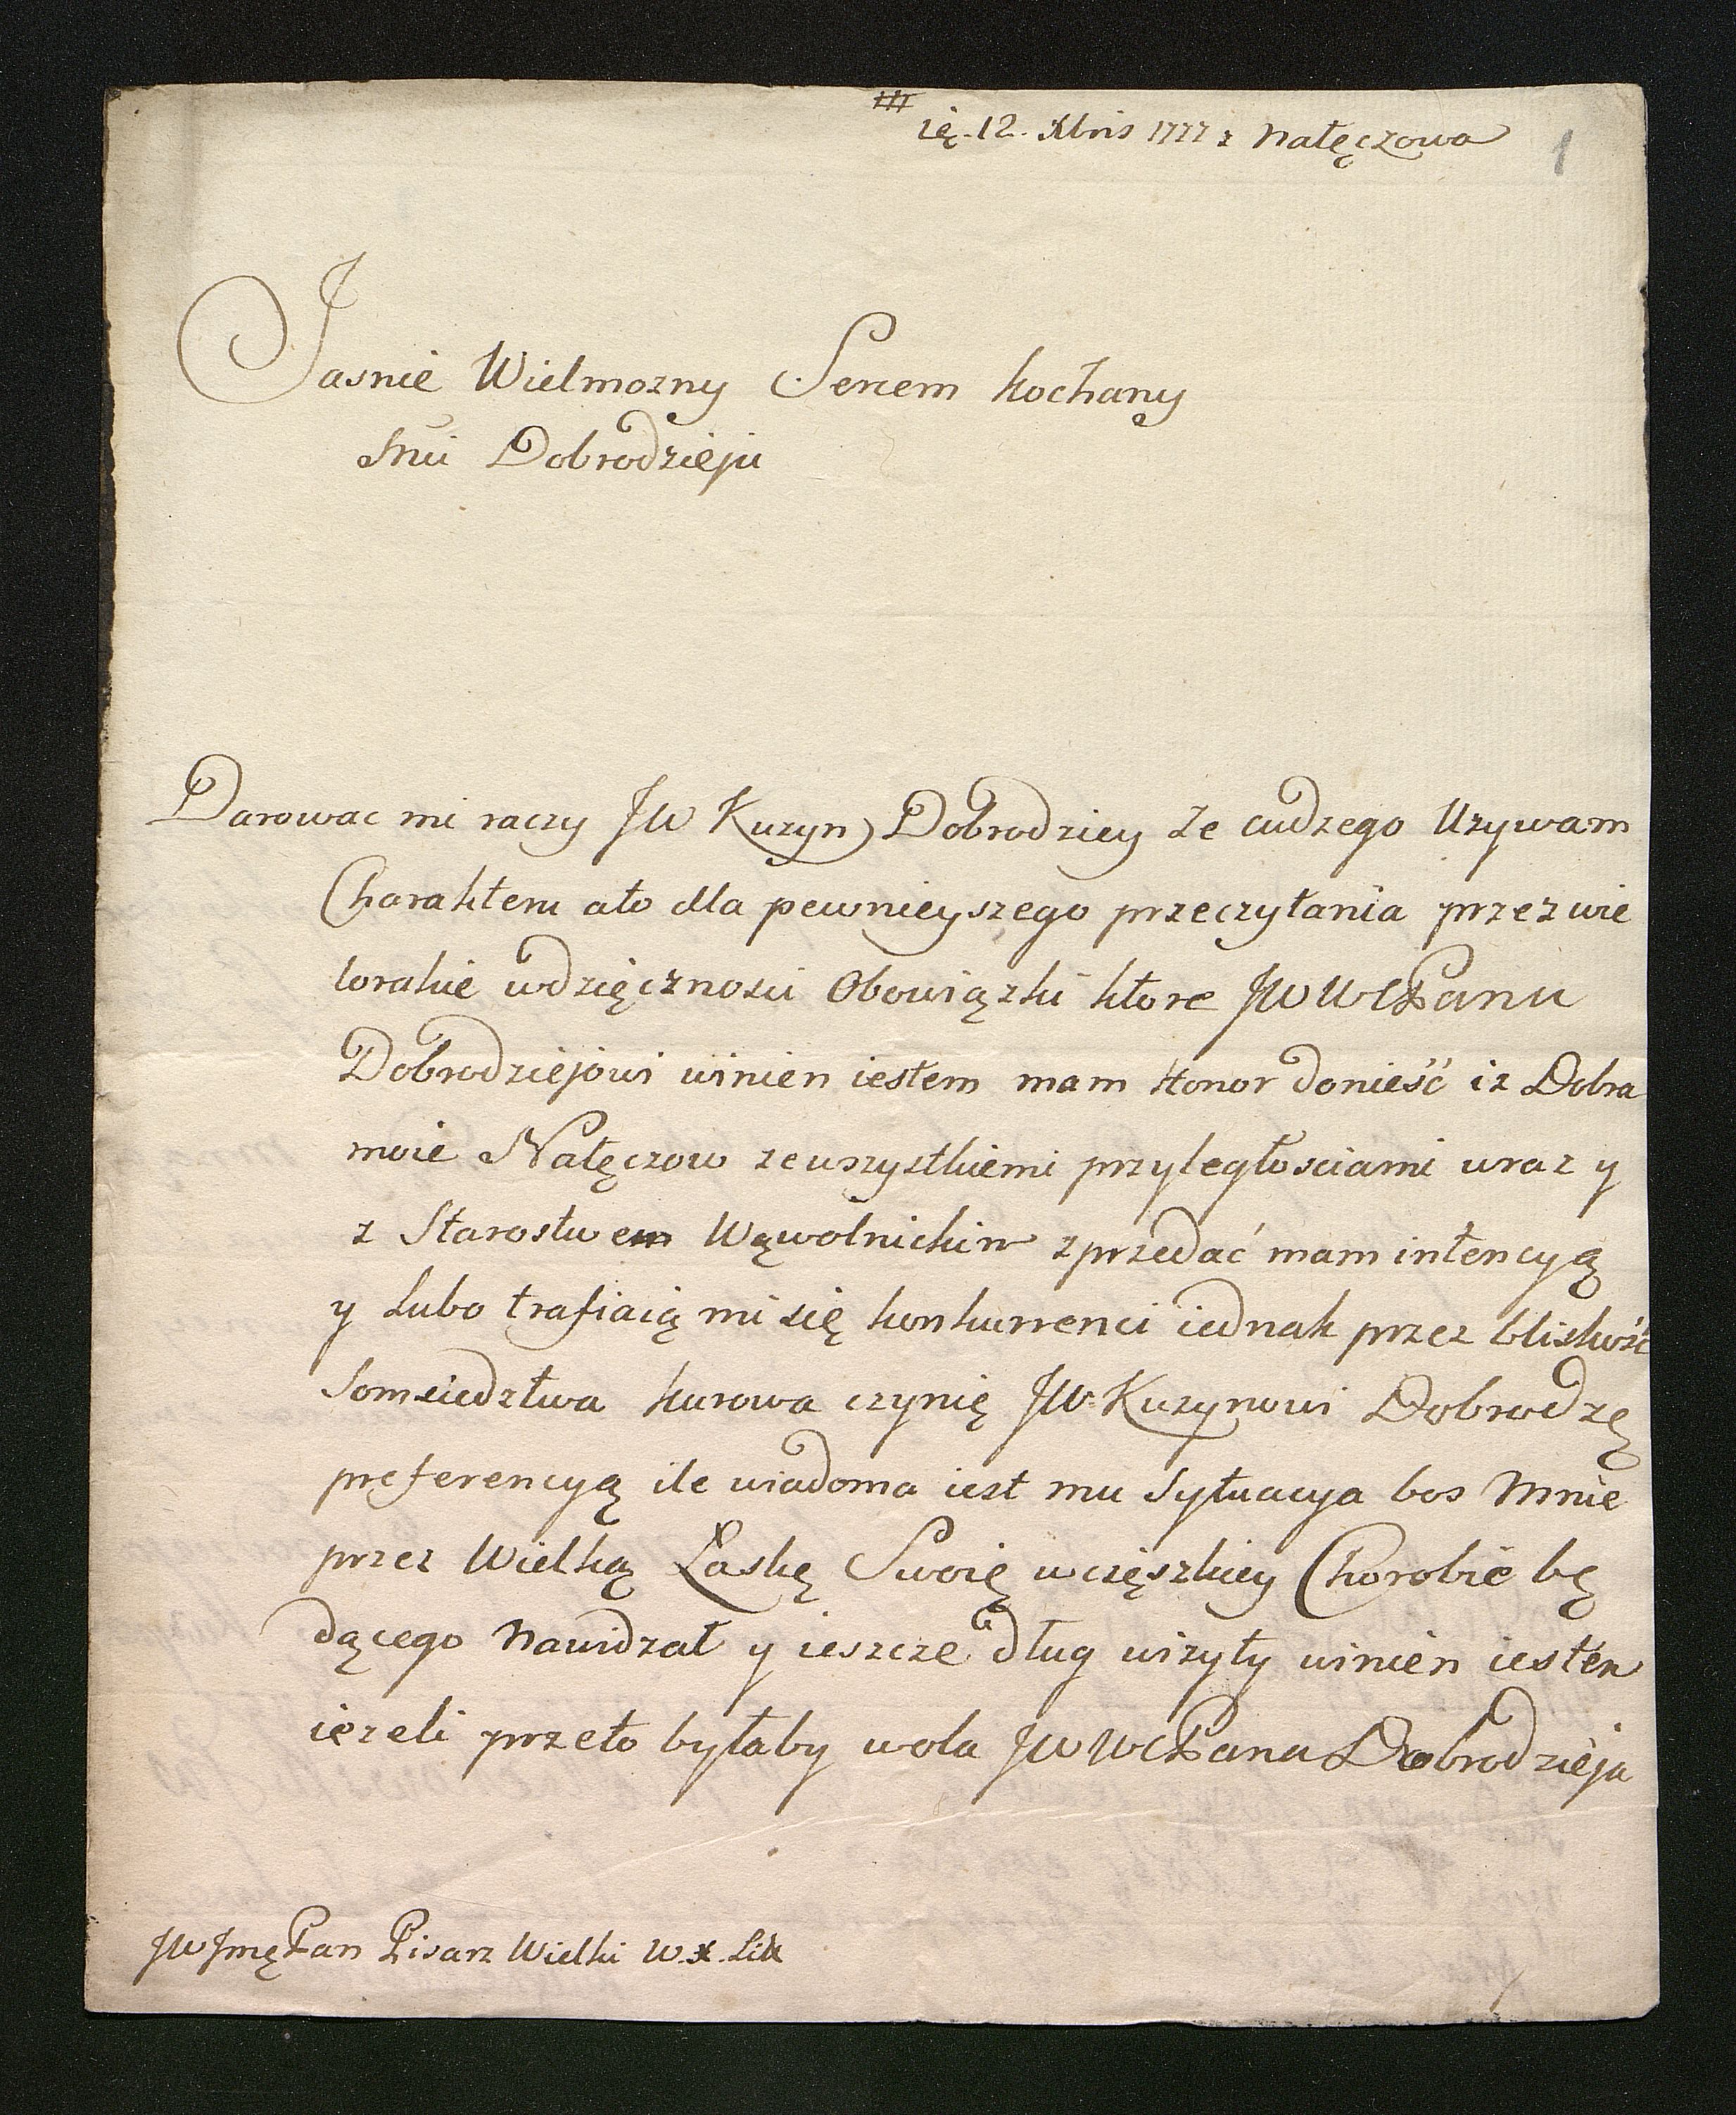 ię. 12. Xbris 1777 z Nałęczowa
1
Jasnie Wielmozny Sercem kochany
Dobrodzieju
Darowac mi raczy JW Kuzyn Dobrodziey ze cudzego Uzywam
Charakteru ato dla pewnieyszego przeczytania przez wie
lorakie wdzięcznosci Obowiązki ktore JWWCPanu
Dobrodziejowi winien iestem mam Honor donieść iz Dobra
moie Nałęczow zewszystkiemi przyległosciami wraz y
z Starostwem Wąwolnickim zprzedać mam intencyą
y Lubo trafiaią mi się konkurrenci iednak przez bliskość
Somsiedztwa kurowa czynię JW. Kuzynowi Dobrodzę
preferencyą ile wiadoma iest mu Sytuacya bos Mnie
przez Wielką Łaskę Swoię wcięszkiey Chorobie bę
dącego Nawidzał y ieszcze dług wizyty winien iestem
iezeli przeto byłaby wola JWWCPana Dobrodzieja
JWJmę Pan Pisarz Wielki W. X. Litt